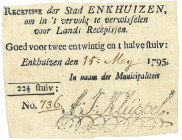 RECEPISSE der Stad ENKHUIZEN,
om in 't vervolg te verwisselen
voor Lands Recepissen.
Goed voor twee entwintig en t halve stuiv:
Enkhuizen den 15: Mey 1795.
In naam der Municipaliteit
22½ stuiv:
No. 736.